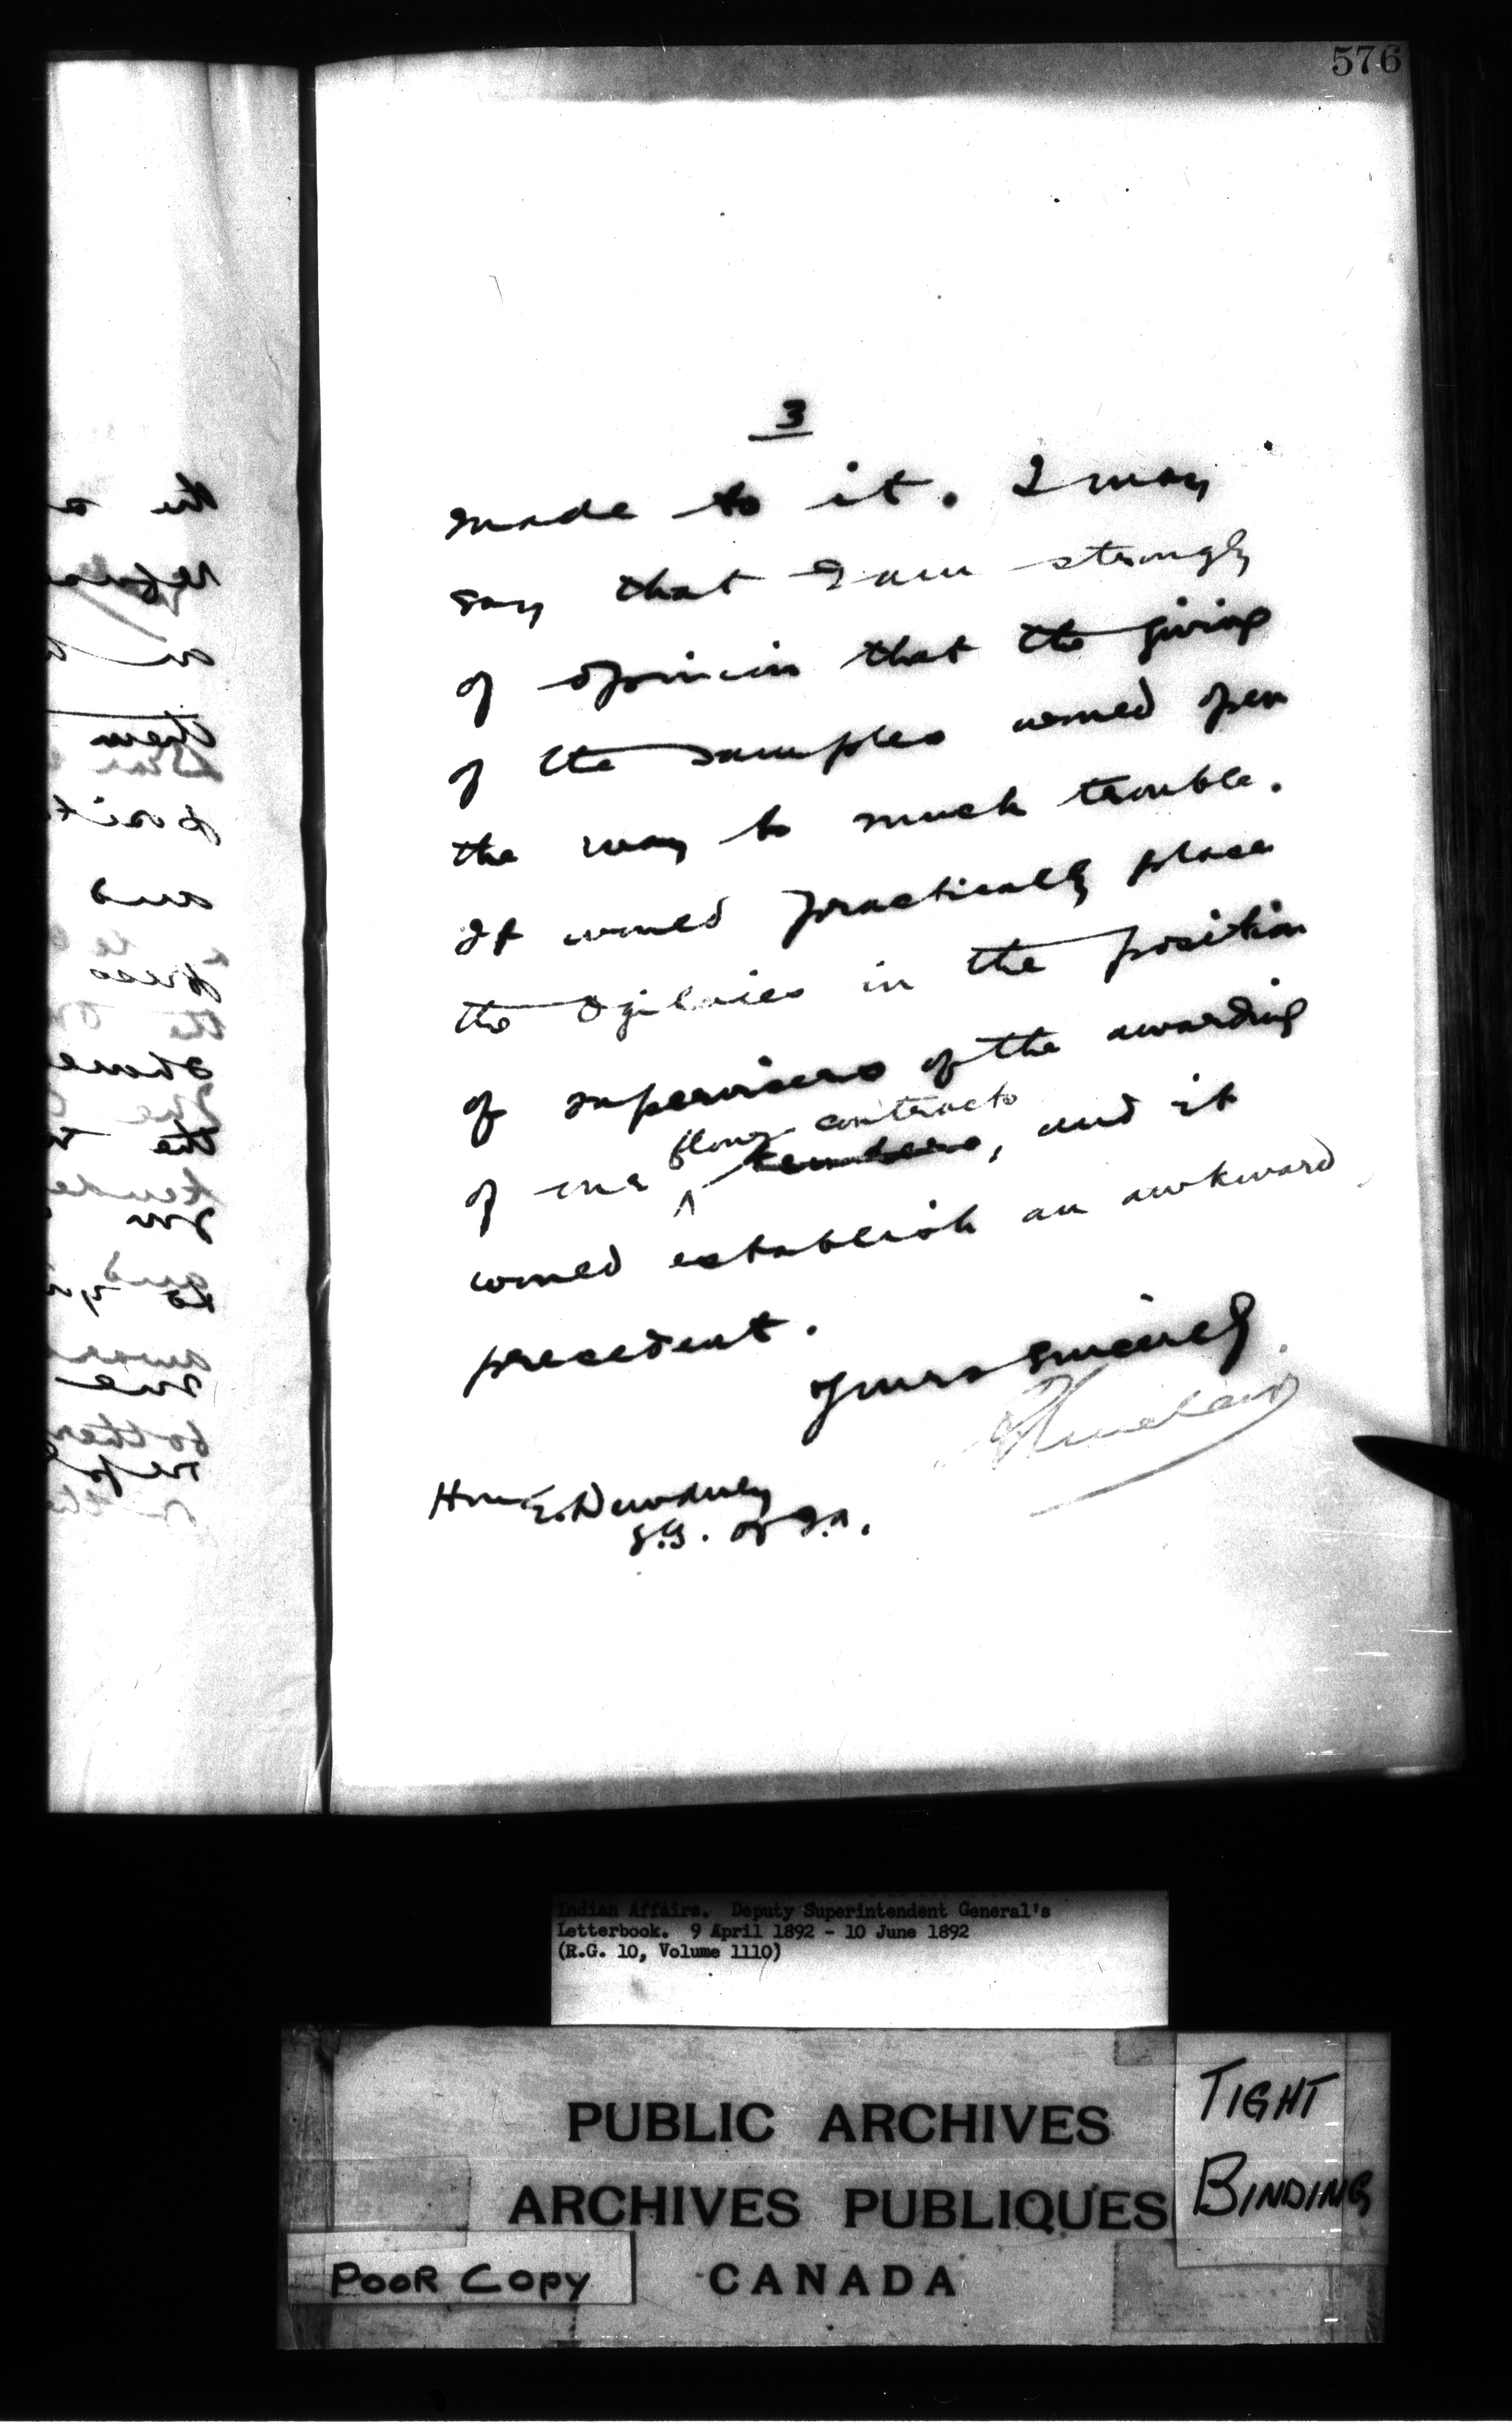 576
3
made to it. I may
say that I am strongly
of opinion that the giving
of the samples would open
the way to much trouble.
It would practically place
the Ogilvies in the position
of supervisors of the awarding
flour contracts
of our tenders, and it
would establish an awkward
precedent.
Yours sincerely
R Sinclair
Hon E. Dewdney
S.G. of I.A.
the a
an
them
posit
and
press
the
the t
and
me
Indian Affairs. Deputy Superintendent General's
Letterbook. 9 April 1892 - 10 June 1892
(R.G. 10, Volume 1110)
PUBLIC ARCHIVES
ARCHIVES PUBLIQUES
CANADA
TIGHT
BINDING
POOR COPY